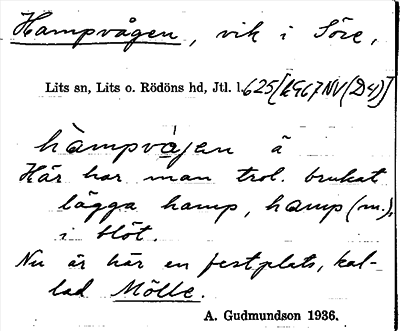 Hampvågen, vik i Söre,
Lits sn, Lits o. Rödöns hd, Jtl. l.
hàmpvágen ä
Här har man trol. brukat
lägga hamp, hamp (m.),
i blöt.
Nu är här en festplats, kal-
lad Mölle.
A. Gudmundson 1936.